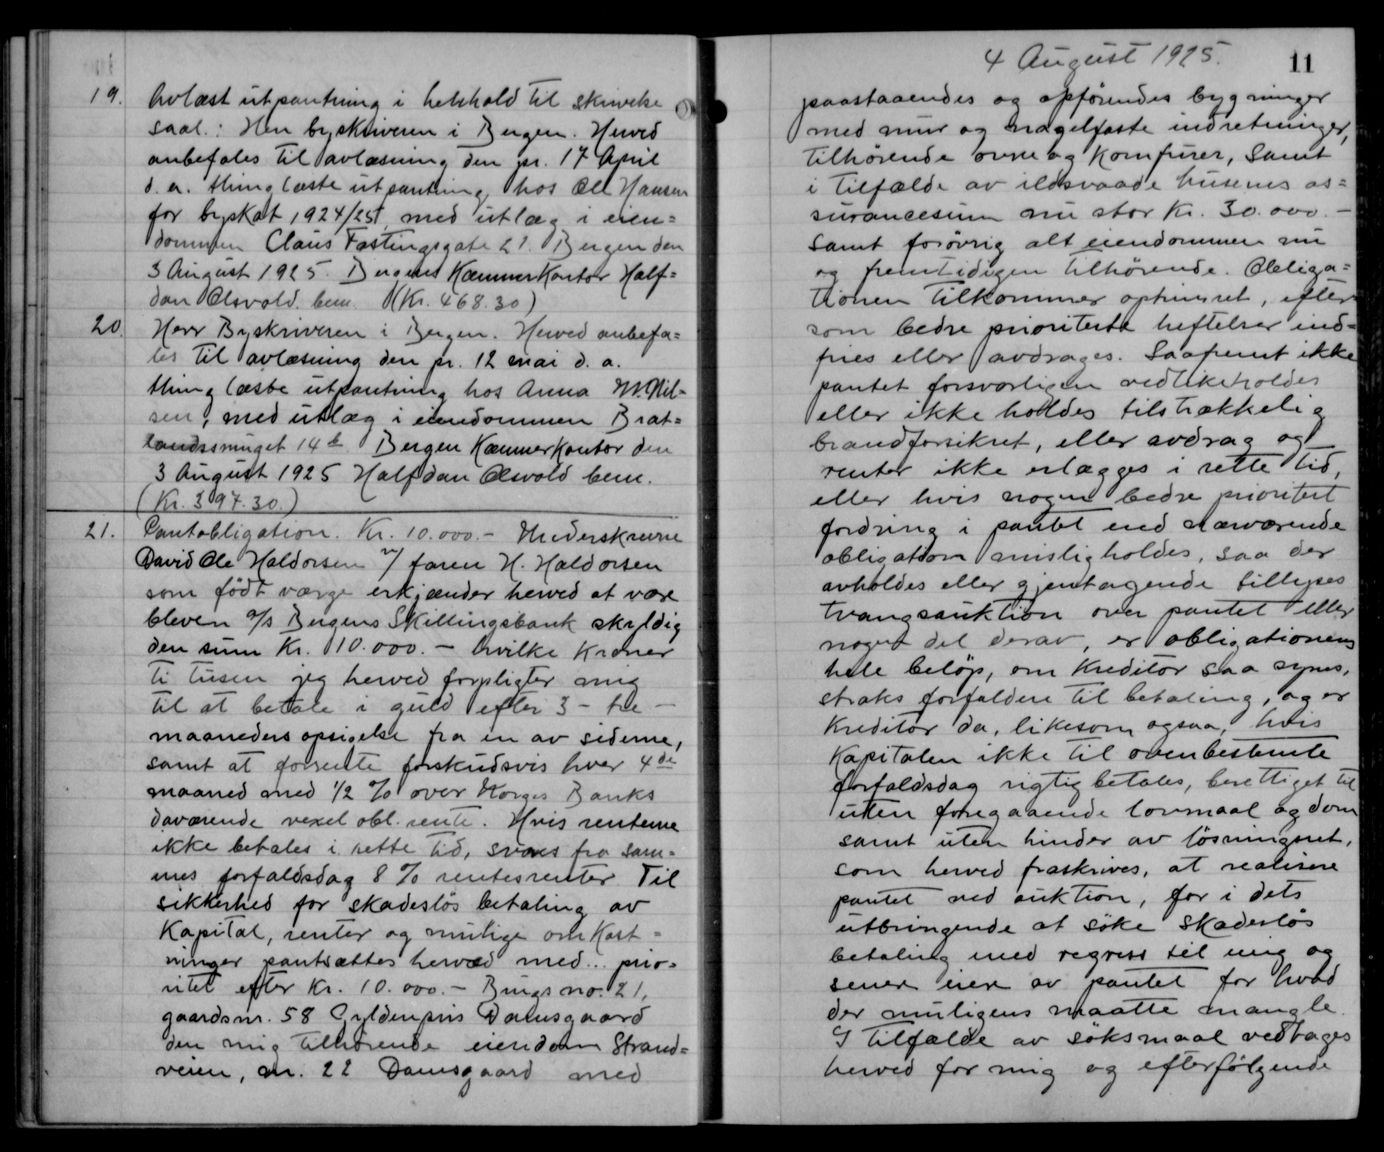 19. Avlæst utpantning i hehhold til skrivelse
saal.: Herr byskriveren i Bergen. Herved
anbefales til avlæsning den pr. 17 April
d. a. thinglæste utpantning hos Ole Hansen
for byskat 1924/25, med utlæg i eien=
dommen Claus Fastingsgate 21. Bergen den
3 August 1925. Bergens Kæmnerkontor Half=
dan Olsvold. bem. (Kr. 468.30)
20. Herr Byskriveren i Bergen. Herved anbefa=
les til avlæsning den pr. 12 mai d. a.
thinglæste utpantning hos Anna M. Nil=
sen, med utlæg i eiendommen Brat=
landssmuget 14b Bergen Kæmnerkontor den
3 August 1925 Halfdan Olsvold bem.
(Kr. 397.30.)
21. Pantobligation. Kr. 10.000.- Underskrevne
David Ole Haldorsen v/ faren H. Haldorsen
som født værge erkjænder herved at være
bleven a/s Bergens Skillingsbank skyldig
den sum Kr. 10.000.- hvilke Kroner
ti tusen jeg herved forpligter mig
til at betale i guld efter 3 - tre -
maaneders opsigelse fra en av siderne,
samt at forrente forskudsvis hver 4de
maaned med 1/2 % over Norges Banks
daværende vexel obl. rente. Hvis renterne
ikke betales i rette tid, svares fra sam=
mes forfaldsdag 8 % rentesrenter. Til
sikkerhed for skadesløs betaling av
Kapital, renter og mulige omkost=
ninger pantsættes herved med... prio=
ritet efter Kr. 10.000.- Brugs no. 21,
gaardsnr. 58 Gyldenpris Damsgaard
den mig tilhørende eiendom Strand=
veien, nr. 22 Damsgaard med
4 August 1925. 11
paastaaendes og opførendes bygninger
med mur og nagelfaste indretninger,
tilhørende ovne og Komfurer, samt
i tilfælde av ildsvaade husenes as=
surancesum nu stor Kr. 30.000.-
samt forøvrig alt eiendommen nu
og fremtidigen tilhørende. Obliga=
tionen tilkommer opryksret, efter
som bedre prioriterte heftelser ind=
fries eller avdrages. Saafremt ikke
pantet forsvarligen vedlikeholdes
eller ikke holdes tilstrækkelig
brandforsikret, eller avdrag og
renter ikke erlægges i rette tid,
eller hvis nogen bedre prioritert
fordring i pantet end nærværende
obligation misligholdes, saa der
avholdes eller gjentagende tillyses
tvangsauktion over pantet eller
nogen del derav, er obligationens
hele beløp, om Kreditor saa synes,
straks forfalden til betaling, og er
Kreditor da, likesom ogsaa, hvis
Kapitalen ikke til ovenbestemte
forfaldsdag rigtig betales, berettiget til
uten foregaaende lovmaal og dom
samt uten hinder av løsningsret,
som herved fraskrives, at realisere
pantet ved auktion, for i dets
utbringende at søke skadesløs
betaling med regress til mig og
senere eier av pantet for hvad
der muligens maatte mangle.
I tilfælde av søksmaal vedtages
herved for mig og efterfølgende